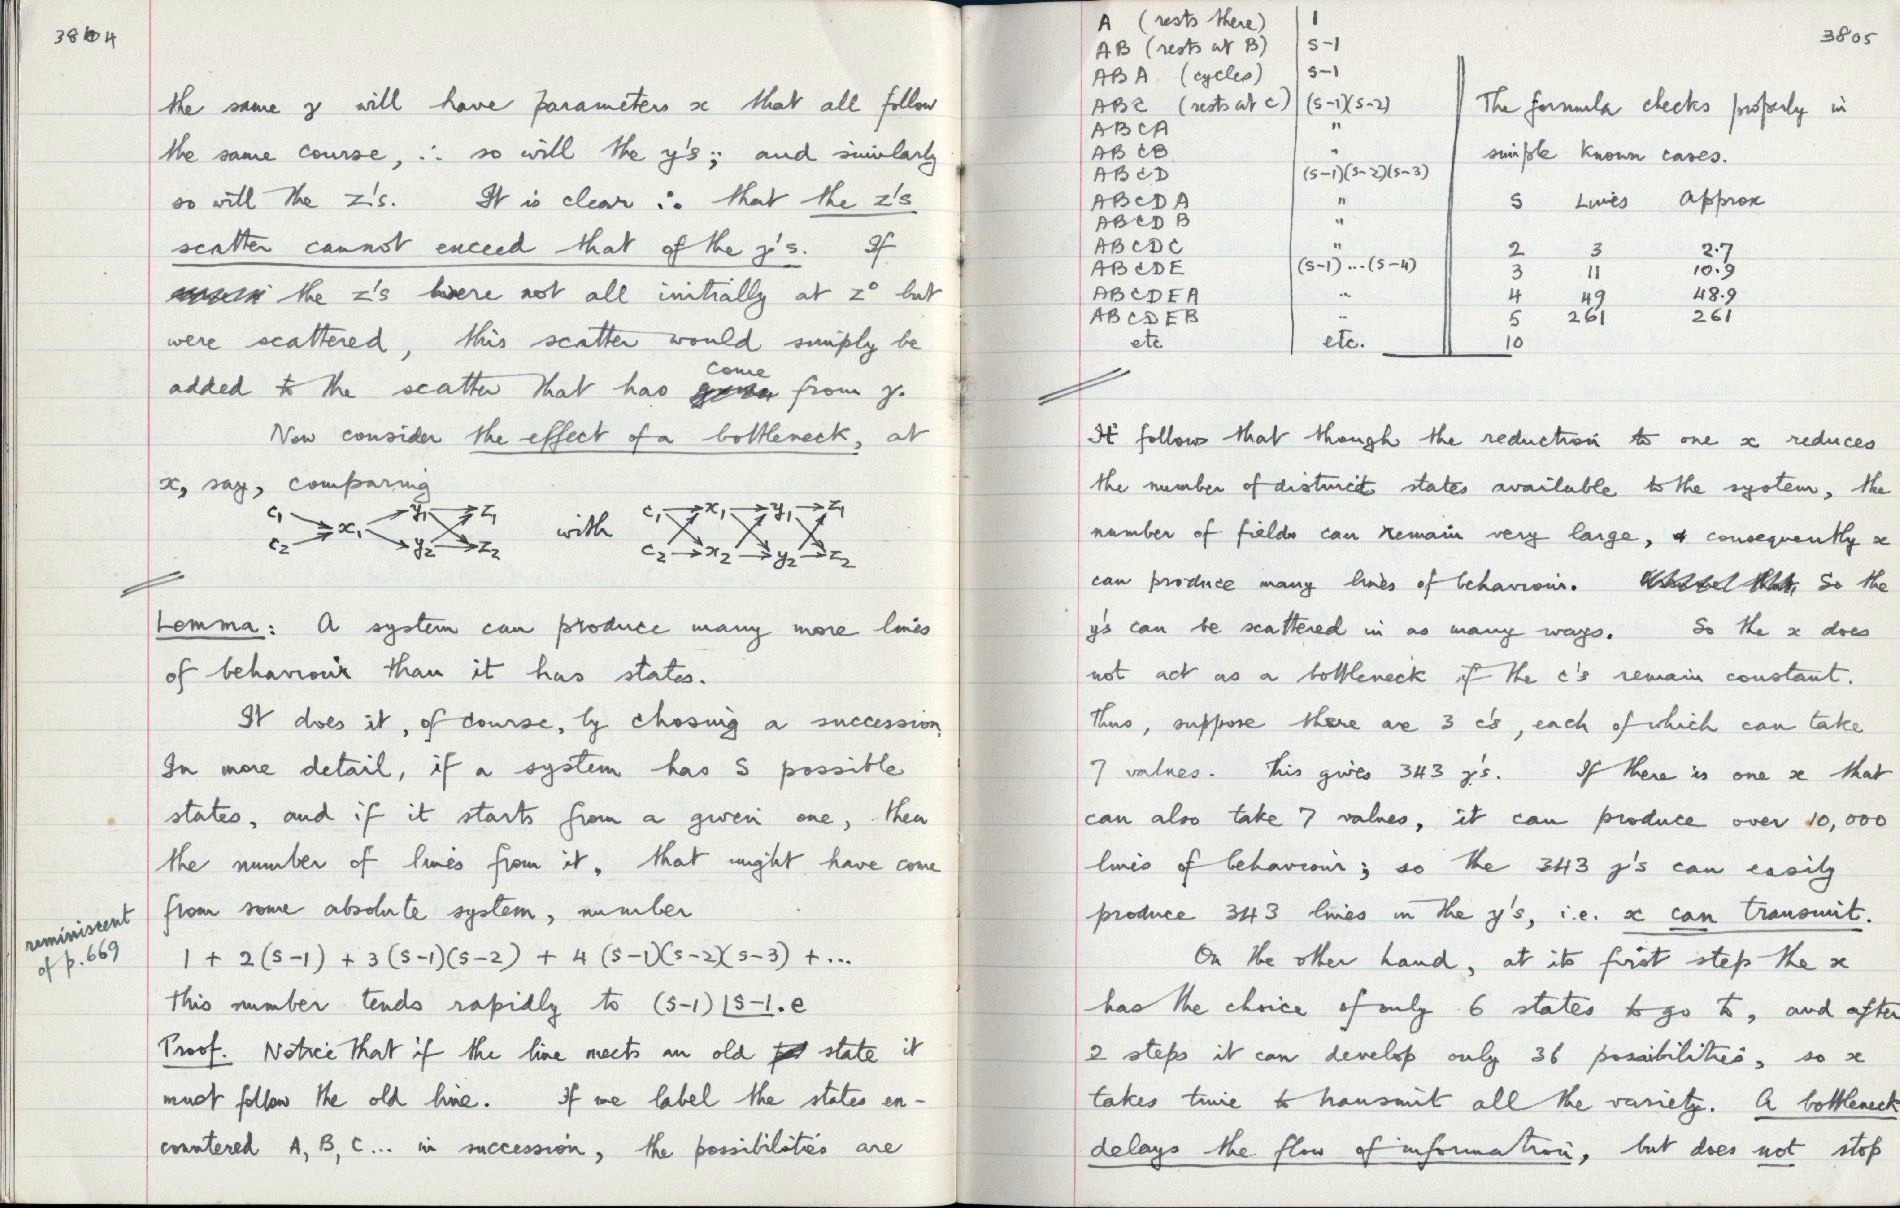 3804
the same y will have parameters x that all follow
the same course, ∴ so will the y's; and similarly
so will the z's. It is clear ∴ that the z's
scatter cannot exceed that of the y's. If
the z's were not all initially at z° but
were scattered, this scatter would simply be
added to the scatter that has come from y.
Now consider the effect of a bottleneck, at
x, say, comparing
c₁ x₁ y₁ z₁
c₂ y₂ z₂
with
c₁ x₁ y₁ z₁
c₂ x₂ y₂ z₂
Lemma: A system can produce many more lines
of behaviour than it has states.
It does it, of course, by chosing a succession.
In more detail, if a system has S possible
states, and if it starts from a given one, then
the number of lines from it, that might have come
from some absolute system, number
reminiscent
of p. 669
1 + 2(S-1) + 3(S-1)(S-2) + 4(S-1)(S-2)(S-3) + ...
this number tends rapidly to (S-1)|S-1.e
Proof. Notice that if the line meets an old state it
must follow the old line. If we label the states en-
countered A, B, C... in succession, the possibilities are
3805
A (rests there) 1
AB (rests at B) S-1
ABA (cycles) S-1
ABC (rests at C) (S-1)(S-2)
ABCA "
ABCB "
ABCD (S-1)(S-2)(S-3)
ABCDA "
ABCDB "
ABCDC "
ABCDE (S-1)...(S-4)
ABCDEA "
ABCDEB "
etc etc.
The formula checks properly in
simple known cases.
S Lines Approx
2 3 2.7
3 11 10.9
4 49 48.9
5 261 261
10
It follows that though the reduction to one x reduces
the number of distinct states available to the system, the
number of fields can remain very large, & consequently x
can produce many lines of behaviour. So the
y's can be scattered in as many ways. So the x does
not act as a bottleneck if the c's remain constant.
Thus, suppose there are 3 c's, each of which can take
7 values. This gives 343 y's. If there is one x that
can also take 7 values, it can produce over 10,000
lines of behaviour; so the 343 y's can easily
produce 343 lines in the y's, i.e. x can transmit.
On the other hand, at its first step the x
has the choice of only 6 states to go to, and after
2 steps it can develop only 36 possibilities, so x
takes time to transmit all the variety. A bottleneck
delays the flow of information, but does not stop